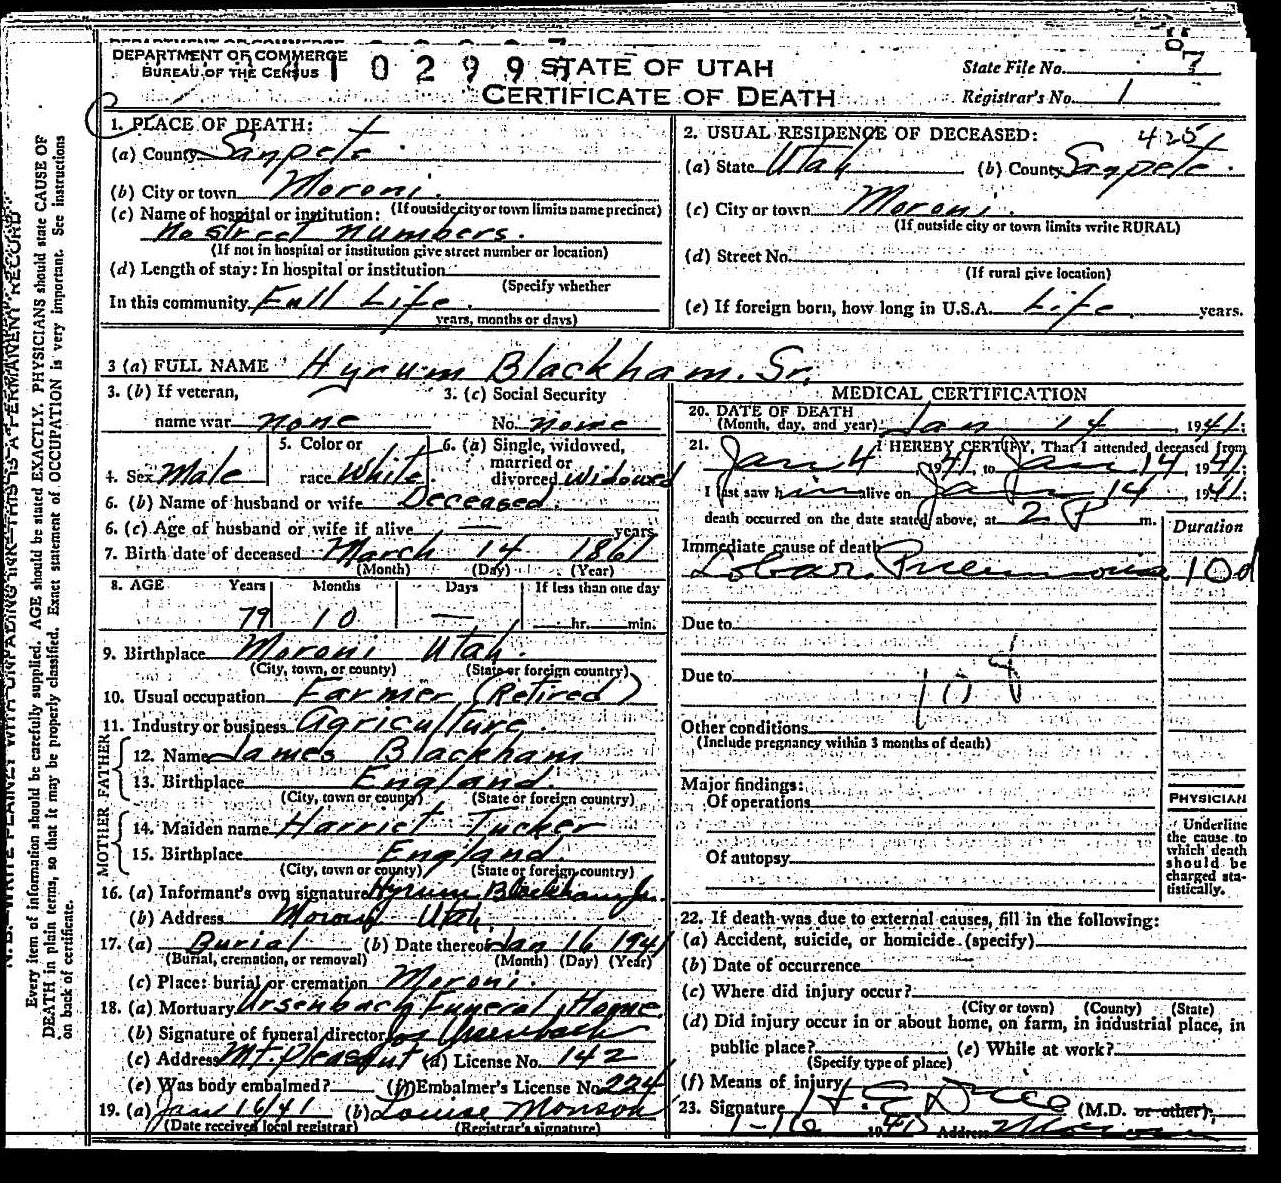 DEPARTMENT OF COMMERCE
BUREAU OF THE CENSUS
STATE OF UTAH
CERTIFICATE OF DEATH
State File No. 7
Registrar's No. 1
1. PLACE OF DEATH:
(a) County Sanpete
(b) City or town Moroni.
(If outside city or town limits name precinct)
(c) Name of hospital or institution:
No street numbers.
(If not in hospital or institution give street number or location)
(d) Length of stay: In hospital or institution
(Specify whether
In this community Full Life
years, months or days)
2. USUAL RESIDENCE OF DECEASED: 425
(a) State Utah (b) County Sanpete.
(c) City or town Moroni.
(If outside city or town limits write RURAL)
(d) Street No.
(If rural give location)
(e) If foreign born, how long in U.S.A. Life years.
3 (a) FULL NAME Hyrum Blackham. Sr.
3. (b) If veteran,
name war none
3. (c) Social Security
No. none
4. Sex Male
5. Color or
race White.
6. (a) Single, widowed,
married or
divorced widowed
6. (b) Name of husband or wife Deceased.
6. (c) Age of husband or wife if alive — years
7. Birth date of deceased March 14 1861
(Month) (Day) (Year)
8. AGE Years Months Days If less than one day
79 10 — hr. min.
9. Birthplace Moroni Utah.
(City, town, or county) (State or foreign country)
10. Usual occupation Farmer (Retired)
11. Industry or business Agriculture.
FATHER
12. Name James Blackham
13. Birthplace England.
(City, town or county) (State or foreign country)
MOTHER
14. Maiden name Harriet Tucker
15. Birthplace England.
(City, town or county) (State or foreign country)
16. (a) Informant's own signature Hyrum Blackham Jr.
(b) Address Moroni Utah.
17. (a) Burial (b) Date thereof Jan 16 1941
(Burial, cremation, or removal) (Month) (Day) (Year)
(c) Place: burial or cremation Moroni.
18. (a) Mortuary Ursenbach Funeral Home
(b) Signature of funeral director Ursenbach
(c) Address Mt. Pleasant (d) License No. 142
(e) Was body embalmed? (f) Embalmer's License No. 224
19. (a) Jan 16/41 (b) Louise Monson
(Date received local registrar) (Registrar's signature)
MEDICAL CERTIFICATION
20. DATE OF DEATH
(Month, day, and year) Jan 14, 1941;
21. I HEREBY CERTIFY, That I attended deceased from
Jan 4 1941, to Jan 14 1941;
I last saw him alive on Jan 14, 1941;
death occurred on the date stated above, at 2 P m.
Duration
Immediate cause of death
Lobar Pneumonia 10d
Due to
Due to
108
Other conditions
(Include pregnancy within 3 months of death)
Major findings:
Of operations
Of autopsy
PHYSICIAN
Underline
the cause to
which death
should be
charged sta-
tistically.
22. If death was due to external causes, fill in the following:
(a) Accident, suicide, or homicide (specify)
(b) Date of occurrence
(c) Where did injury occur?
(City or town) (County) (State)
(d) Did injury occur in or about home, on farm, in industrial place, in
public place? (e) While at work?
(Specify type of place)
(f) Means of injury
23. Signature (M.D. or other);
1-16 1941 Address Moroni
N.B. WRITE PLAINLY WITH UNFADING INK—THIS IS A PERMANENT RECORD
Every item of information should be carefully supplied. AGE should be stated EXACTLY. PHYSICIANS should state CAUSE OF
DEATH in plain terms, so that it may be properly classified. Exact statement of OCCUPATION is very important. See instructions
on back of certificate.